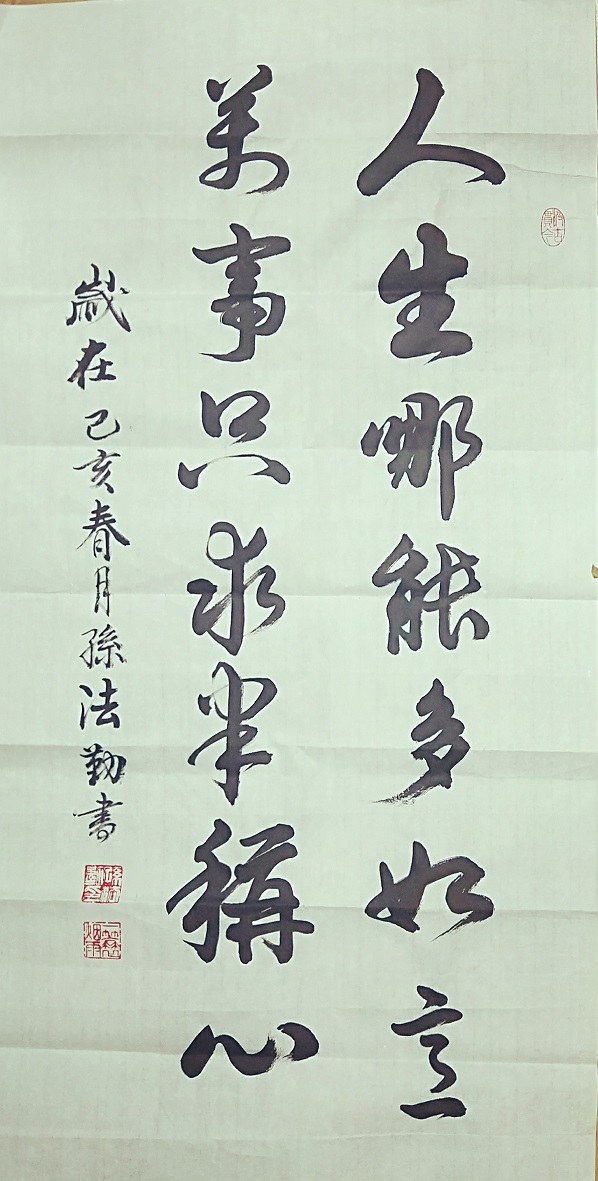 人生哪能多如意
萬事只求半稱心
歲在己亥春月孫法勤書